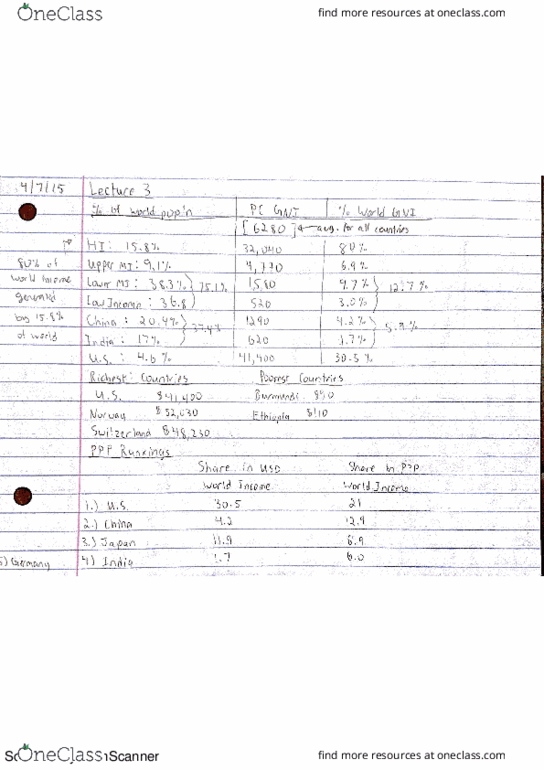 OneClass find more resources at oneclass.com
4/7/15 Lecture 3
% of world pop'n PC GNI % World GNI
[6280] ← avg. for all countries
HI: 15.8% 32,040 80%
80% of Upper MI: 9.1% 4,770 6.9%
world income Lower MI: 38.3% 75.1% 1580 9.7% 12.7%
generated Low Income: 36.8 520 3.0%
by 15.8% China: 20.4% 37.4% 1290 4.2% 5.9%
of world India: 17% 620 1.7%
U.S.: 4.6% 41,400 30.5%
Richest Countries Poorest Countries
U.S. $41,400 Burundi $90
Norway $52,030 Ethiopia $110
Switzerland $48,230
PPP Rankings
Share in USD Share in PPP
World Income World Income
1.) U.S. 30.5 21
2.) China 4.2 12.9
3.) Japan 11.9 6.9
5) Germany 4) India 1.7 6.0
OneClass Scanner find more resources at oneclass.com